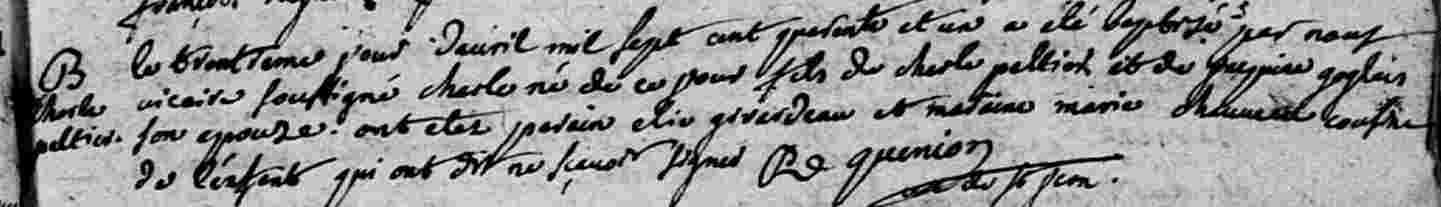 B
Charle
peltier.
le trentieme jour d'auril mil sept cent quarante et un a été baptisé par nous
vicaire soussigné charle né de ce jour fils de charle peltier et de
son epouze. ont etez parain elie girardeau et maraine marie cousine
de l'enfant qui ont dit ne sçauoir signer
de st jean.